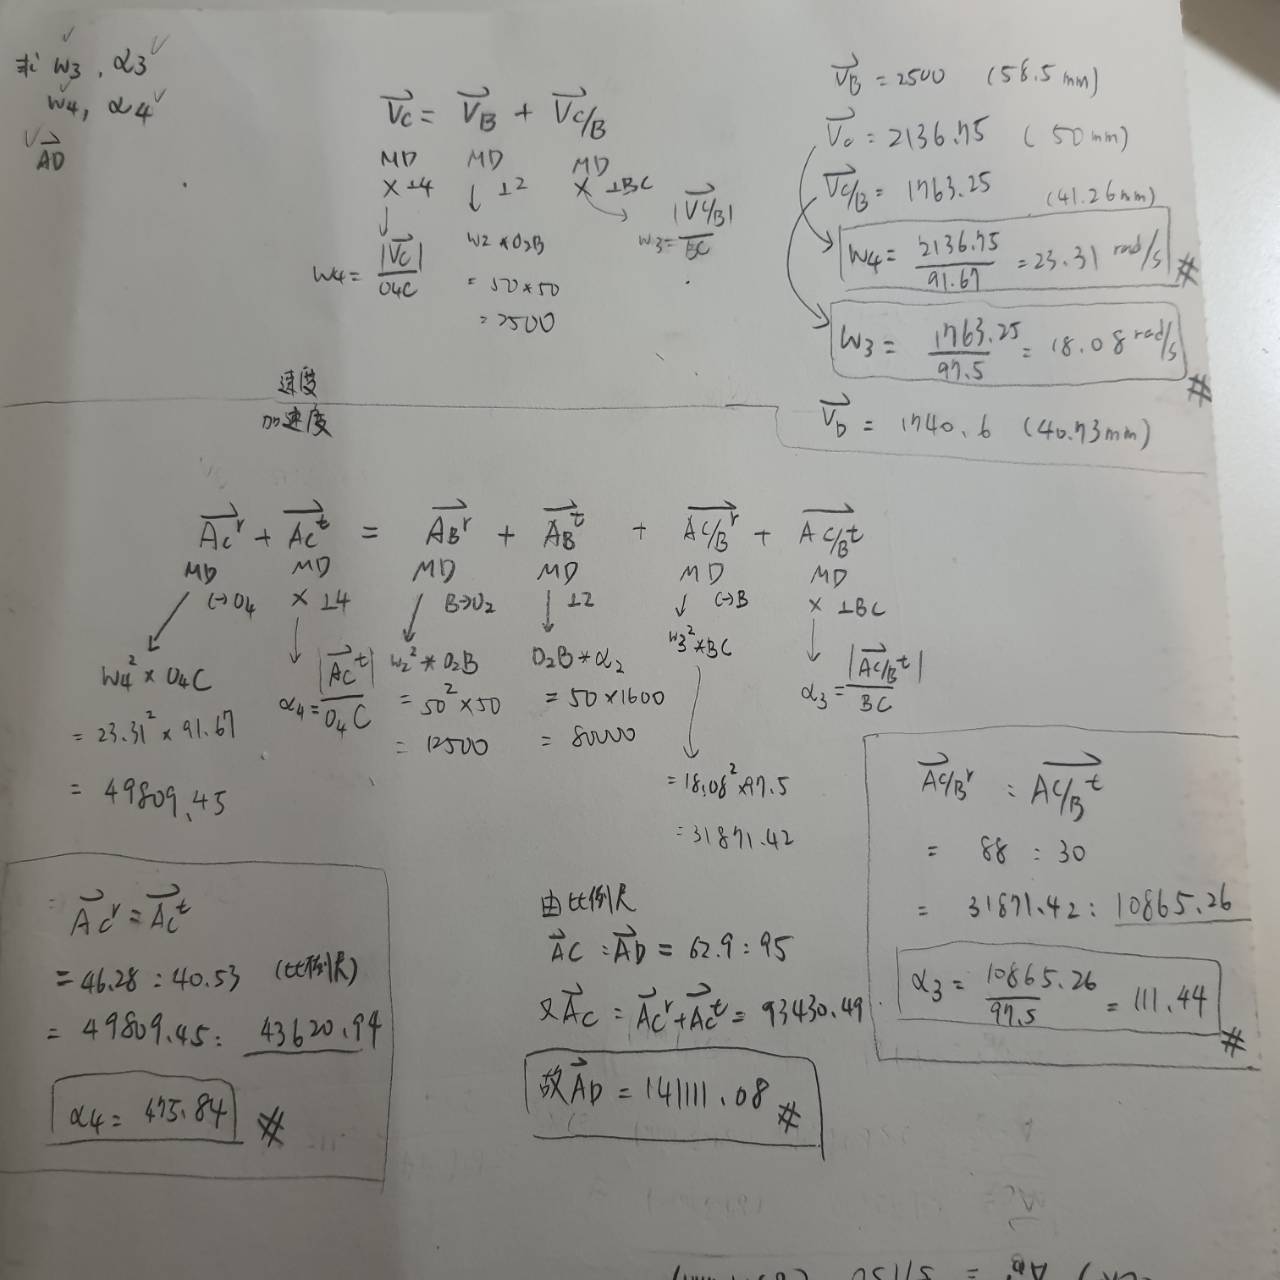 求 w3, α3
w4, α4
AD
Vc = VB + Vc/B
MD MD MD
× ⊥4 ⊥2 × ⊥BC
w4 = |Vc| / O4C
w2 × O2B
= 50 × 50
= 2500
w3 = |Vc/B| / BC
VB = 2500 (58.5mm)
Vc = 2136.75 (50mm)
Vc/B = 1763.25 (41.26mm)
w4 = 2136.75 / 91.67 = 23.31 rad/s #
w3 = 1763.25 / 97.5 = 18.08 rad/s #
VD = 1740.6 (40.73mm)
速度
加速度
Ac^r + Ac^t = AB^r + AB^t + Ac/B^r + Ac/B^t
MD MD MD MD MD MD
C→O4 × ⊥4 B→O2 ⊥2 C→B × ⊥BC
w4² × O4C
= 23.31² × 91.67
= 49809.45
α4 = |Ac^t| / O4C
w2² × O2B
= 50² × 50
= 12500
O2B × α2
= 50 × 1600
= 80000
w3² × BC
= 18.08² × 97.5
= 31871.42
α3 = |Ac/B^t| / BC
Ac^r = Ac^t
= 46.28 : 40.53 (比例尺)
= 49809.45 : 43620.94
α4 = 475.84 #
由比例尺
AC : AD = 62.9 : 95
又 AC = Ac^r + Ac^t = 93430.49
故 AD = 141111.08 #
Ac/B^r : Ac/B^t
= 88 : 30
= 31871.42 : 10865.26
α3 = 10865.26 / 97.5 = 111.44 #